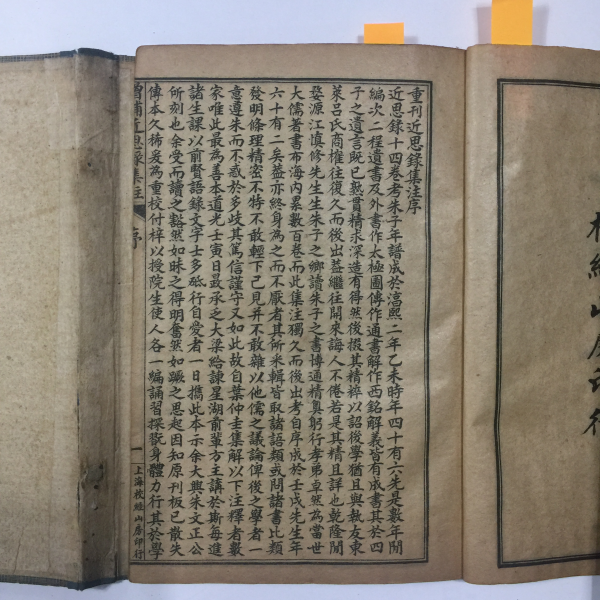 校經山房印行
重刊近思錄集注序
近思錄十四卷考朱子年譜成於淳熙二年乙未時年四十有六先是數年閒
編次二程遺書及外書作太極圖傳作通書解作西銘解義皆有成書其於四
子之遺言既已熟貫精求深造有得然後掇其精粹以詔後學猶且與執友東
萊呂氏商榷往復久而後出蓋繼往開來誨人不倦若是其精且詳也乾隆閒
婺源江慎修先生生朱子之鄉讀朱子之書博通精奧躬行孝弟卓然為當世
大儒著書布海內累數百卷而此集注獨久而後出考自序成於壬戌先生年
六十有二矣蓋亦終身為之而不厭者其所采輯皆取諸語類或問諸書比類
發明條理精密不特不敢輕下己見并不敢雜以他儒之議論俾後之學者一
意遵朱而不惑於多歧其篤信謹守又如此故自葉仲圭集解以下注釋者數
家唯此最為善本道光壬寅日最承之大梁給諫星湖前輩方主講於斯每進
諸生課以前賢語錄文字士多砥行自愛者一日攜此本示余大興朱文正公
所刻也余受而讀之豁然如昧之得明奮然如蹶之思起因知原刊板已散失
傳本久稀爰為重校付梓以授院生使人各一編誦習探翫身體力行其於學
增補近思錄集注 序 一 上海校經山房印行